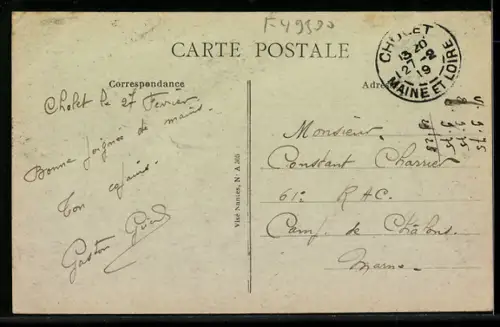 F49300
CARTE POSTALE
Correspondance
CHOLET
13 20
27 -2
19
MAINE ET LOIRE
Cholet le 27 Fevrier
Bonne poignée de mains.
Ton copain.
Gaston
Visé Nantes, N. A 305
Monsieur.
Constant Charrier
61e R.A.C.
Camp. de Châlons.
Marne.